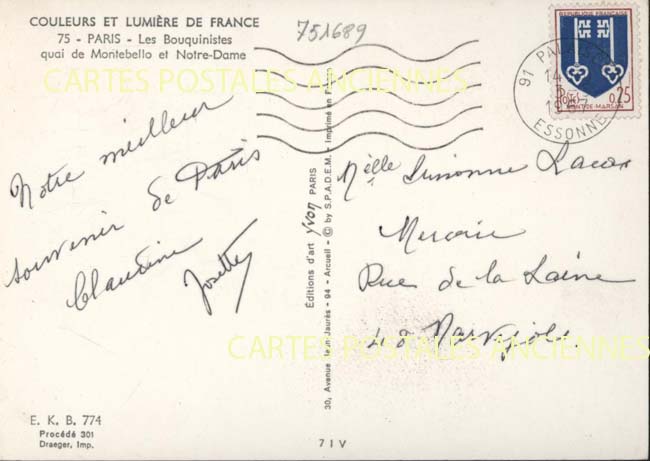 COULEURS ET LUMIÈRE DE FRANCE
75 - PARIS - Les Bouquinistes
quai de Montebello et Notre-Dame
751689
CARTES POSTALES ANCIENNES
Notre meilleur
souvenir de Paris
Claudine
Josette
Editions d'art Yvon PARIS
30, Avenue Jean Jaurès - 94 - Arcueil - © by S.P.A.D.E.M. Imprimé en France
REPUBLIQUE FRANÇAISE
POSTES 0,25
MONT-DE-MARSAN
91
14
ESSONNE
Melle Suzanne
Mercerie
Rue de la Laine
48 Marvejols
CARTES POSTALES ANCIENNES
E. K. B. 774
Procédé 301
Draeger, Imp.
7 I V